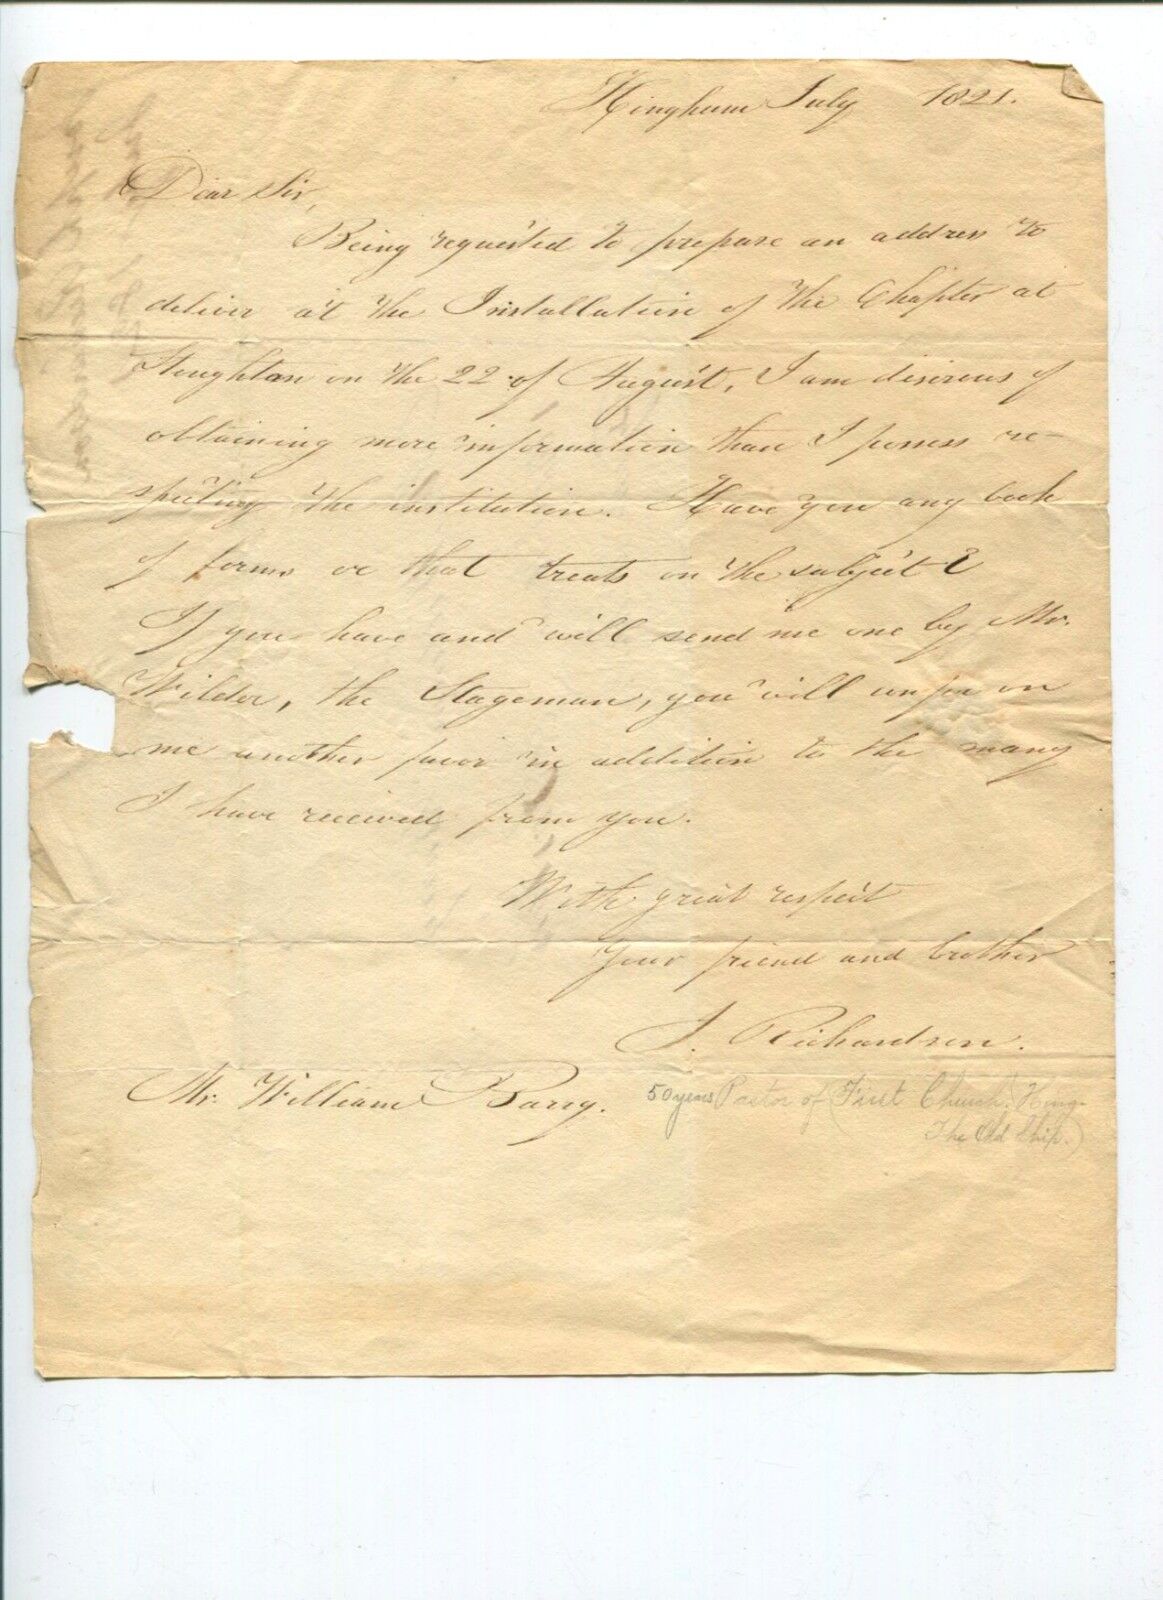 Hingham July 1821.
Dear Sir,
Being requested to prepare an address to
deliver at the Installation of the Chapter at
Stoughton on the 22 of August, I am desirous of
obtaining more information than I possess re-
specting the institution. Have you any book
of forms or that treats on the subject?
If you have and will send me one by Mr.
Wilder, the Stageman, you will confer on
me another favor in addition to the many
I have received from you.
With great respect
Your friend and brother
J. Richardson.
Mr. William Barry.
50 years Pastor of (First Church, Hing.
The Old Ship.)